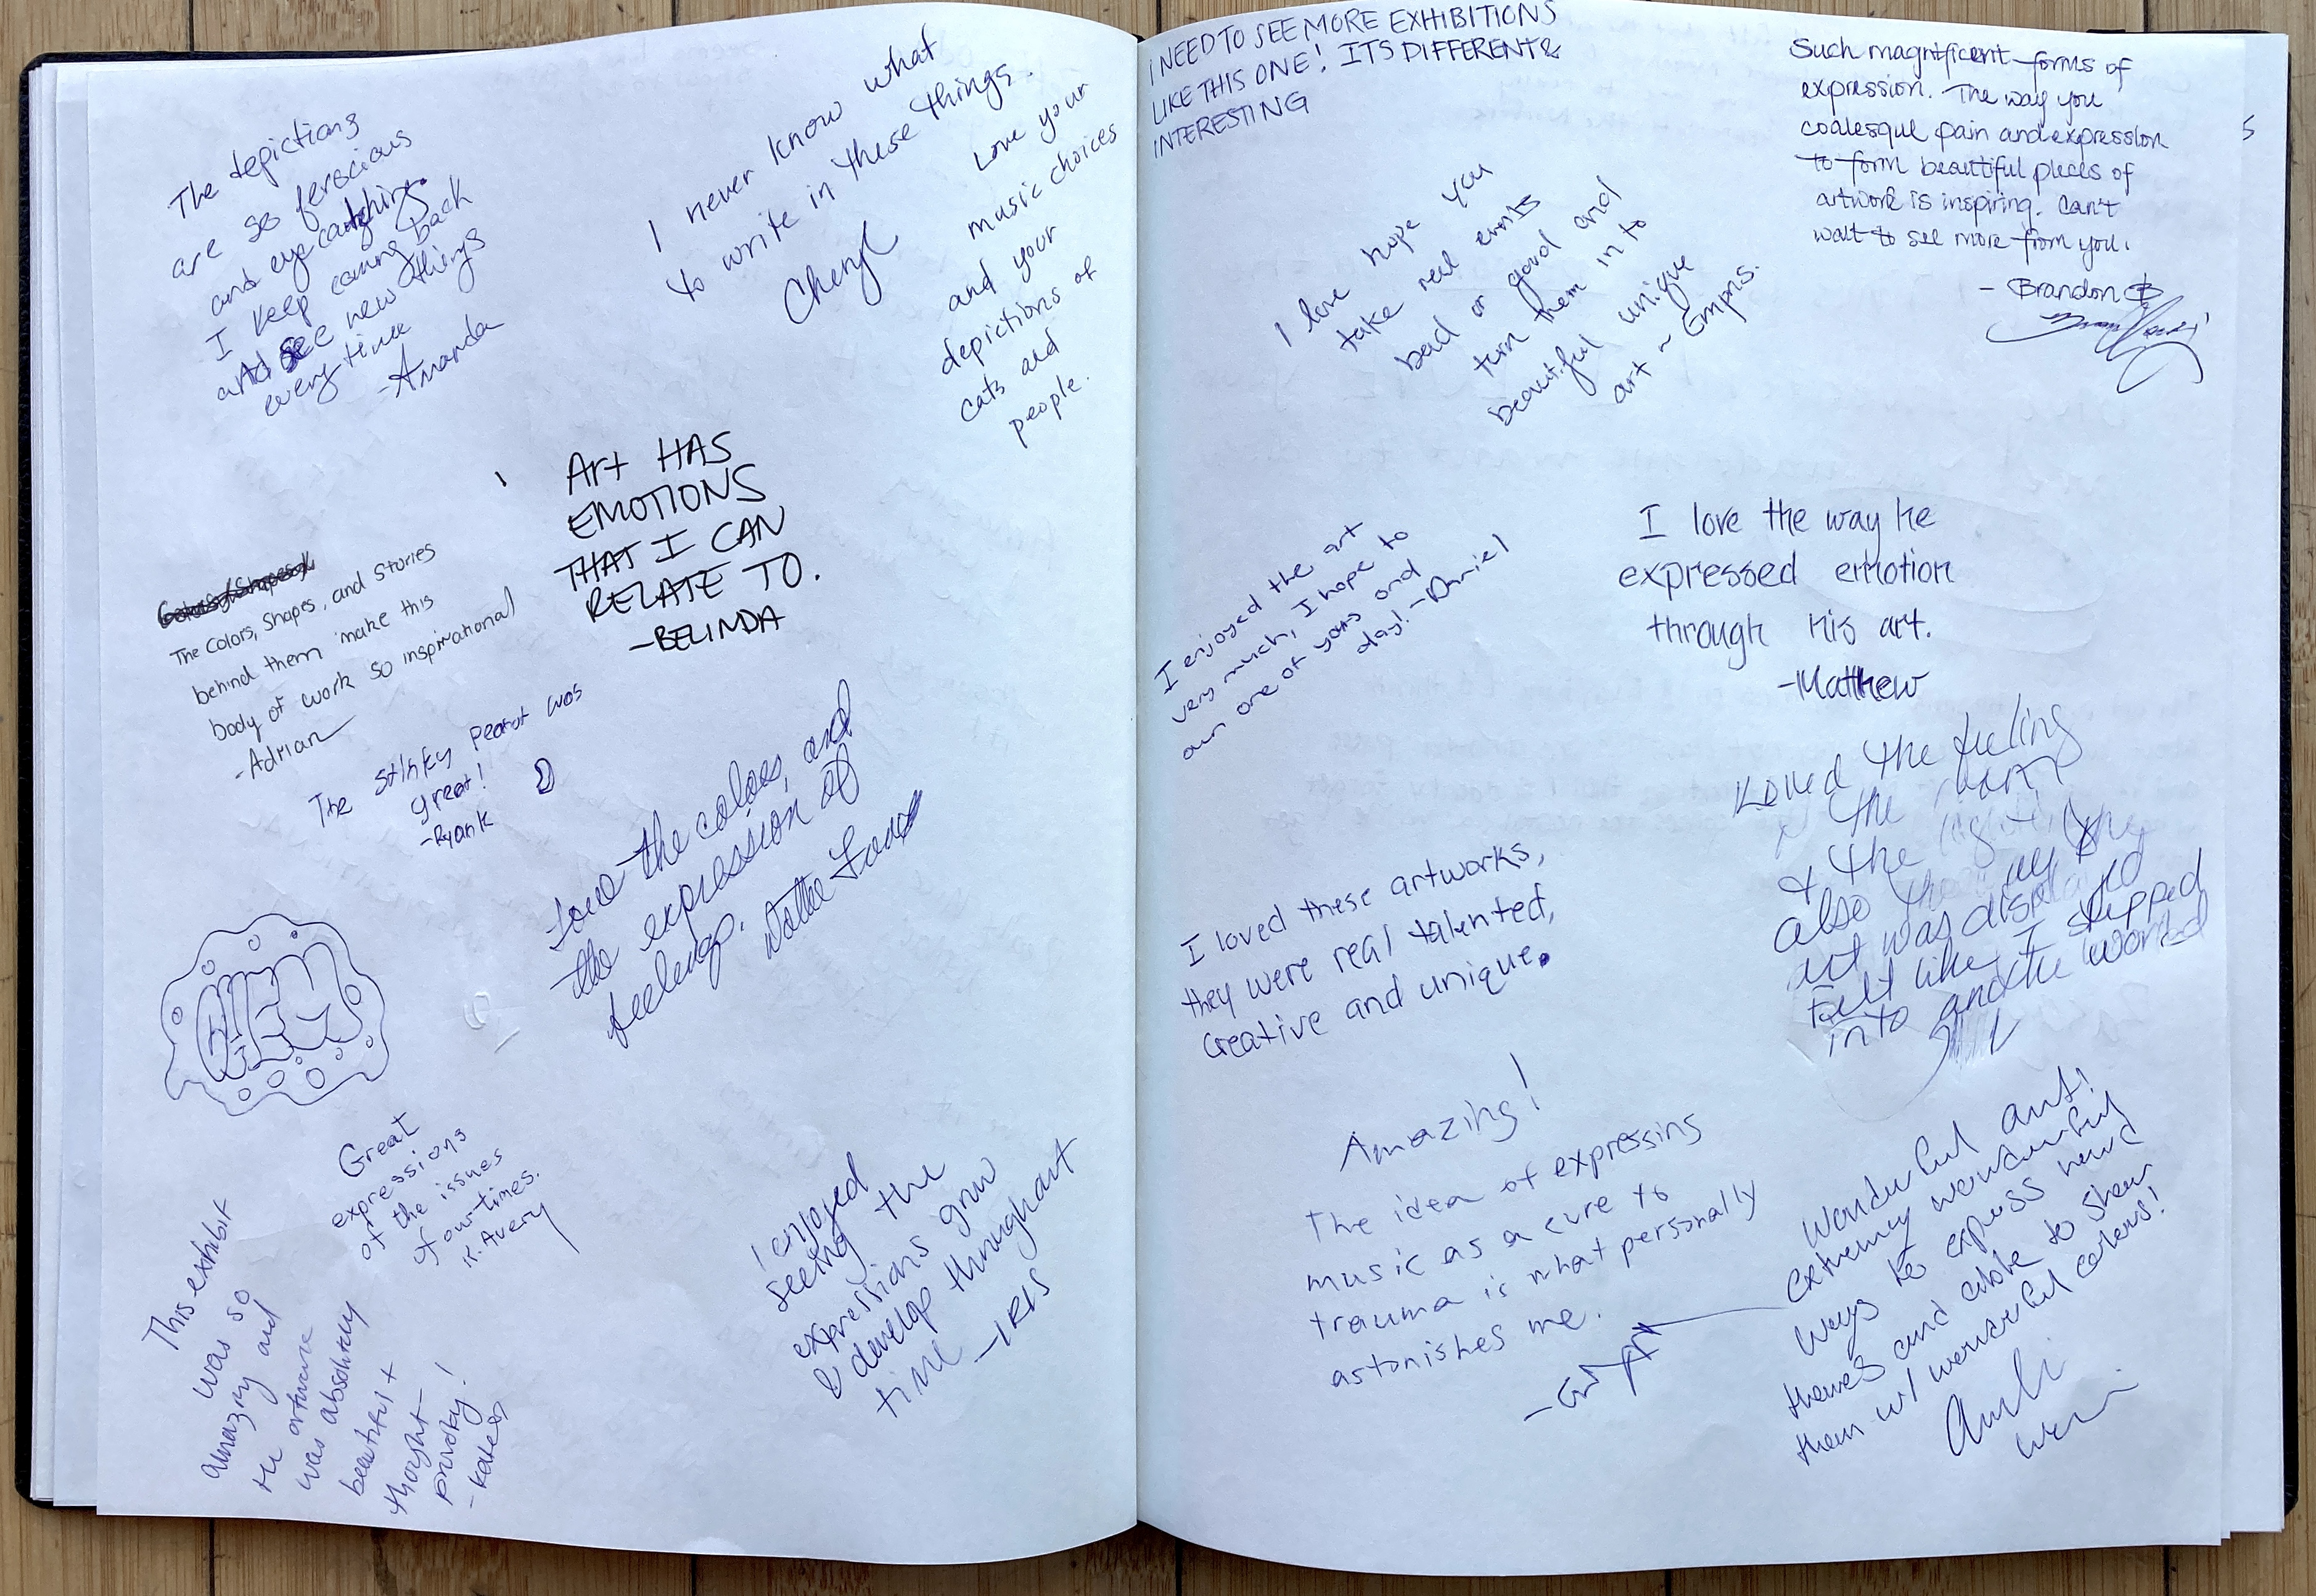 The depictions
are so ferocious
and eyecatching.
I keep coming back
and see new things
every time
-Amanda
I never know what
to write in these things.
Cheryl
Love your
music choices
and your
depictions of
cats and
people.
Art HAS
EMOTIONS
THAT I CAN
RELATE TO.
-BELINDA
The colors, shapes, and stories
behind them make this
body of work so inspirational
-Adrian
The stinky peanut was
great!
-Ryank
Love the colors, and
the expression of
feelings.
Great
expressions
of the issues
of our times.
K. Avery
This exhibit
was so
amazing and
the artwork
was absolutely
beautiful +
thought
provoky!
I enjoyed
seeing the
expressions grow
& develop throughout
time -IRIS
I NEED TO SEE MORE EXHIBITIONS
LIKE THIS ONE! ITS DIFFERENT &
INTERESTING
Such magnificent forms of
expression. The way you
coalesque pain and expression
to form beautiful pieces of
artwork is inspiring. Can't
wait to see more from you.
- Brandon B
5
I love hope you
take real events
bad or good and
turn them in to
beautiful unique
art ~
I enjoyed the art
very much, I hope to
own one of yours and
day! -Daniel
I love the way he
expressed emotion
through his art.
-Matthew
Loved the feeling
the art
& the
also the way the
art was displayed
Felt like I stepped
into another world
I loved these artworks,
they were real talented,
creative and unique.
Amazing!
The idea of expressing
music as a cure to
trauma is what personally
astonishes me.
Wonderful art!
Extremely wonderful
ways to express new
themes and able to show
them w/ wonderful colors!